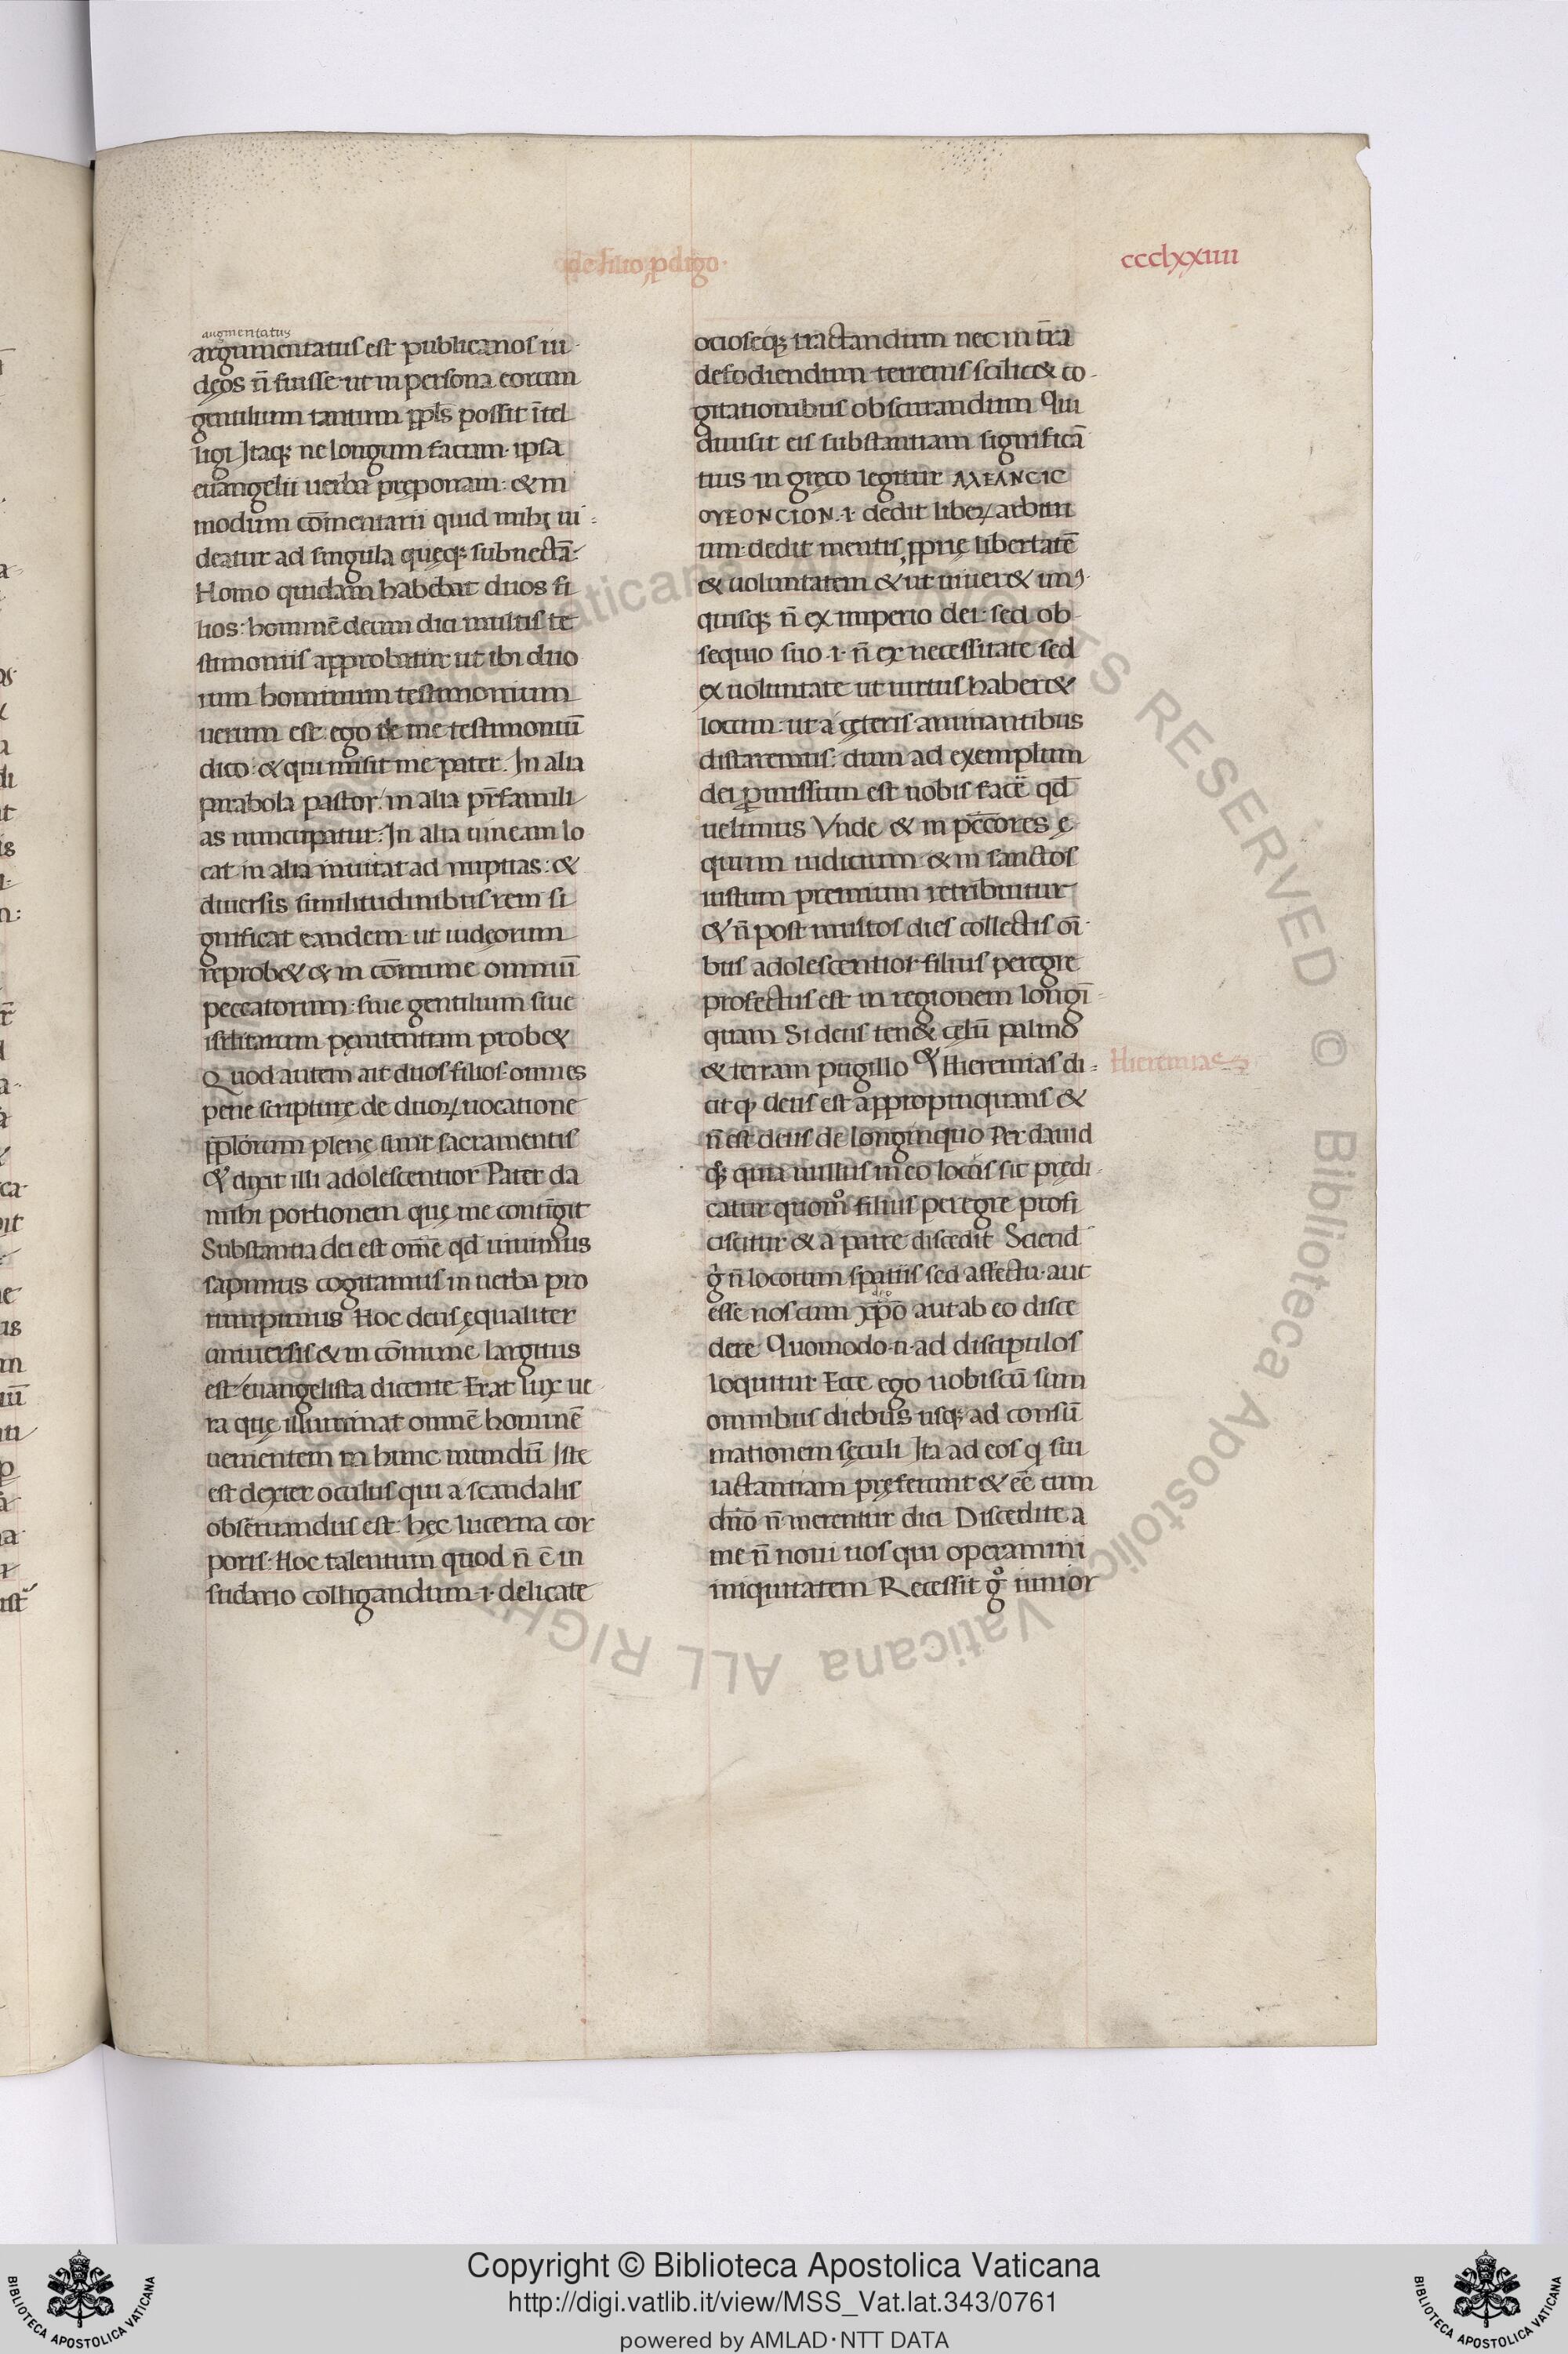 de filio ꝓdigo·
ccclxxiiii
augmentatus
argumentatus est publicanos iu·
dęos n̄ fuisse· ut in persona eorum
gentilium tantum ꝓpl̄s possit ītel
ligi Itaqꝫ ne longum faciam· ipsa
euangelii uerba pręponam: & in
modum cōmentarii quid mihi ui
deatur ad singula quęqꝫ subnectā·
Homo quidam habebat duos fi
lios: hominē deum dici multis te
stimoniis approbatur ut ibi duo
rum hominum testimonium
uerum est· ego de me testimoniū
dico· & qui misit me pater. In alia
parabola pastor· in alia pr̄famili
as nuncupatur: In alia uineam lo
cat in alia inuitat ad nuptias: &
diuersis similitudinibus rem si
gnificat eandem· ut iudęorum
reprob& & in cōmune omniū
peccatorum: siue gentilium siue
isr̄litarum pęnitentiam prob&
Quod autem ait duos filios· omnes
pene scripturę de duoꝝ uocatione
ppl̄orum plenę sunt sacramentis
& dixit illi adolescentior Pater da
mihi portionem quę me contīgit
Substantia dei est om̄e qd̄ uiuimus
sapimus cogitamus in uerba pro
rumpimus Hoc deus ęqualiter
uniuersis & in cōmune largitus
est euangelista dicente Erat lux ue
ra quę illuminat omnē hominē
uenientem in hunc mundū Iste
est dexter oculus qui a scandalis
obseruandus est· hęc lucerna cor
poris· Hoc talentum quod n̄ ē in
sudario colligandum ·i· delicate
ocioseqꝫ tractandum nec in t̄ra
defodiendum terrenis scilic& co
gitationibus obscurandum Qui
diuisit eis substantiam significā
tius in gręco legitur ΑλΕΑΝCΙC
ΟΥΕΟΝCΙΟΝ ·i· dedit libeꝝ arbitri
um· dedit mentis ꝓprię libertatē
& uoluntatem & ut uiuer& unꝰ
quisqꝫ n̄ ex imperio dei· sed ob
sequio suo ·i· n̄ ex necessitate sed
ex uoluntate ut uirtus haber&
locum· ut a cęteris animantibus
distaremus: dum ad exemplum
dei ꝑmissum est nobis facē qd̄
uelimus Vnde & in pc̄cores ę
quum iudicium & in sanctos
iustum premium retribuitur
& n̄ post multos dies collectis oī
bus adolescentior filius peregre
profectus est in regionem longī
quam Si deus ten& cęlū palmo
& terram pugillo & Hieremias di
citqꝫ deus est appropinquans &
n̄ est deus de longinquo Per dauid
qꝫ quia nullus in eo locus sit prędi
catur quom̊ filius peregre profi
ciscitur & a patre discedit Sciend
g̊ n̄ locorum spatiis sed affectu· aut
esse nos cum xp̄o aut ab eo disce
dere Quomodo·n·ad discipulos
loquitur Ecce ego uobiscū sum
omnibus diebus usqꝫ ad consū
mationem sęculi Ita ad eos q sui
iactantiam pręferunt & eē cum
dn̄o n̄ merentur dici Discedite a
me n̄ noui uos qui operamini
iniquitatem Recessit g̊ iunior
Hieremias
Copyright © Biblioteca Apostolica Vaticana
http://digi.vatlib.it/view/MSS_Vat.lat.343/0761
powered by AMLAD·NTT DATA
BIBLIOTECA APOSTOLICA VATICANA
BIBLIOTECA APOSTOLICA VATICANA